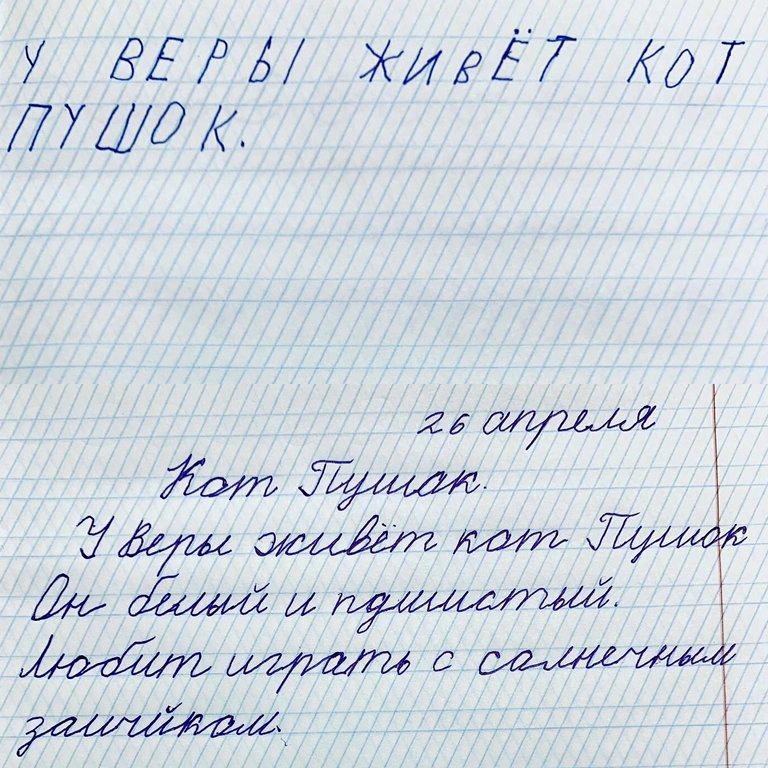 У ВЕРЫ ЖИВЁТ КОТ
ПУШОК.
26 апреля
Кот Пушок.
У Веры живёт кот Пушок
Он белый и пушистый.
Любит играть с солнечным
зайчиком.